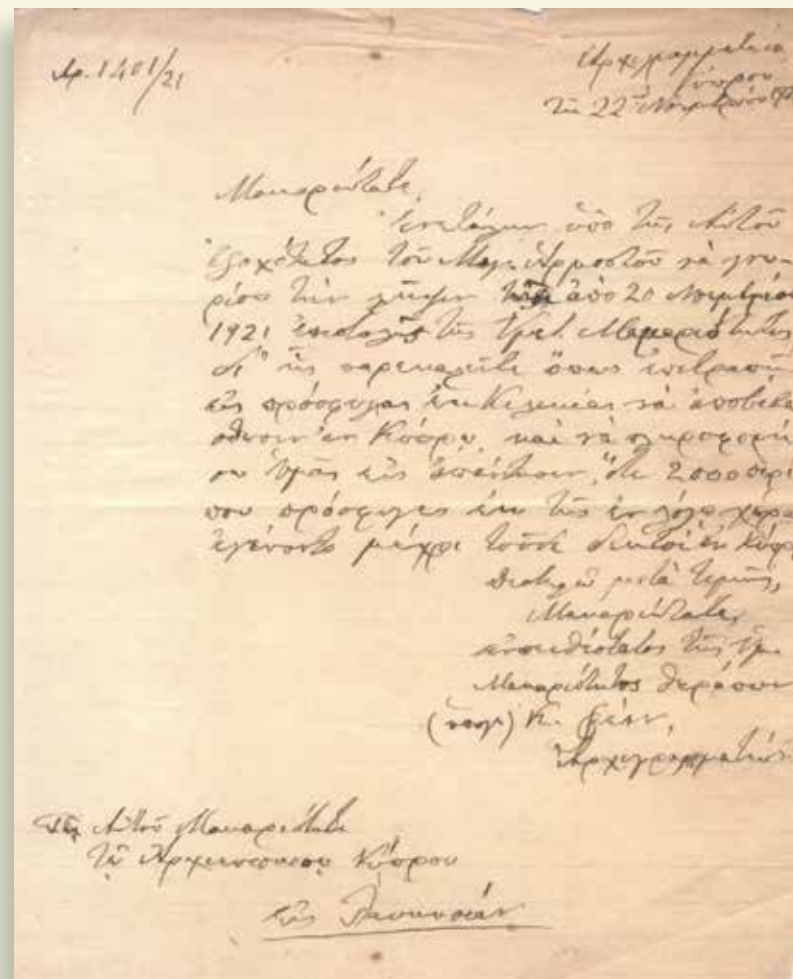 Αρ. 1401/21
Ἀρχιγραμματεία
Κύπρου
Τῇ 22 Νοεμβρίου
Μακαριώτατε,
Ἐνετάλην ὑπὸ τῆς Αὐτοῦ
Ἐξοχότητος τοῦ Μεγ. Ἁρμοστοῦ νὰ γνω-
ρίσω τὴν λῆψιν τῆς ἀπὸ 20 Νοεμβρίου
1921 ἐπιστολῆς τῆς Ὑμετ. Μακαριότητος
δι' ἧς παρεκαλεῖτε ὅπως ἐπιτραπῇ
εἰς πρόσφυγας ἐκ Κιλικίας νὰ ἀποβιβα
σθῶσιν ἐν Κύπρῳ, καὶ νὰ πληροφορή
σω Ὑμᾶς εἰς ἀπάντησιν, ὅτι 2000 περί
που πρόσφυγες ἐκ τῆς ἐν λόγῳ χώρας
ἐγένοντο μέχρι τοῦδε δεκτοὶ ἐν Κύπρ
Διατελῶ μετὰ τιμῆς,
Μακαριώτατε,
εὐπειθέστατος τῆς Ὑμ.
Μακαριότητος θεράπων
(ὑπογ) Κ. Φέν,
Ἀρχιγραμματεύς
Τῇ Αὐτοῦ Μακαριότητι
Τῷ Ἀρχιεπισκόπῳ Κύπρου
εἰς Λευκωσίαν